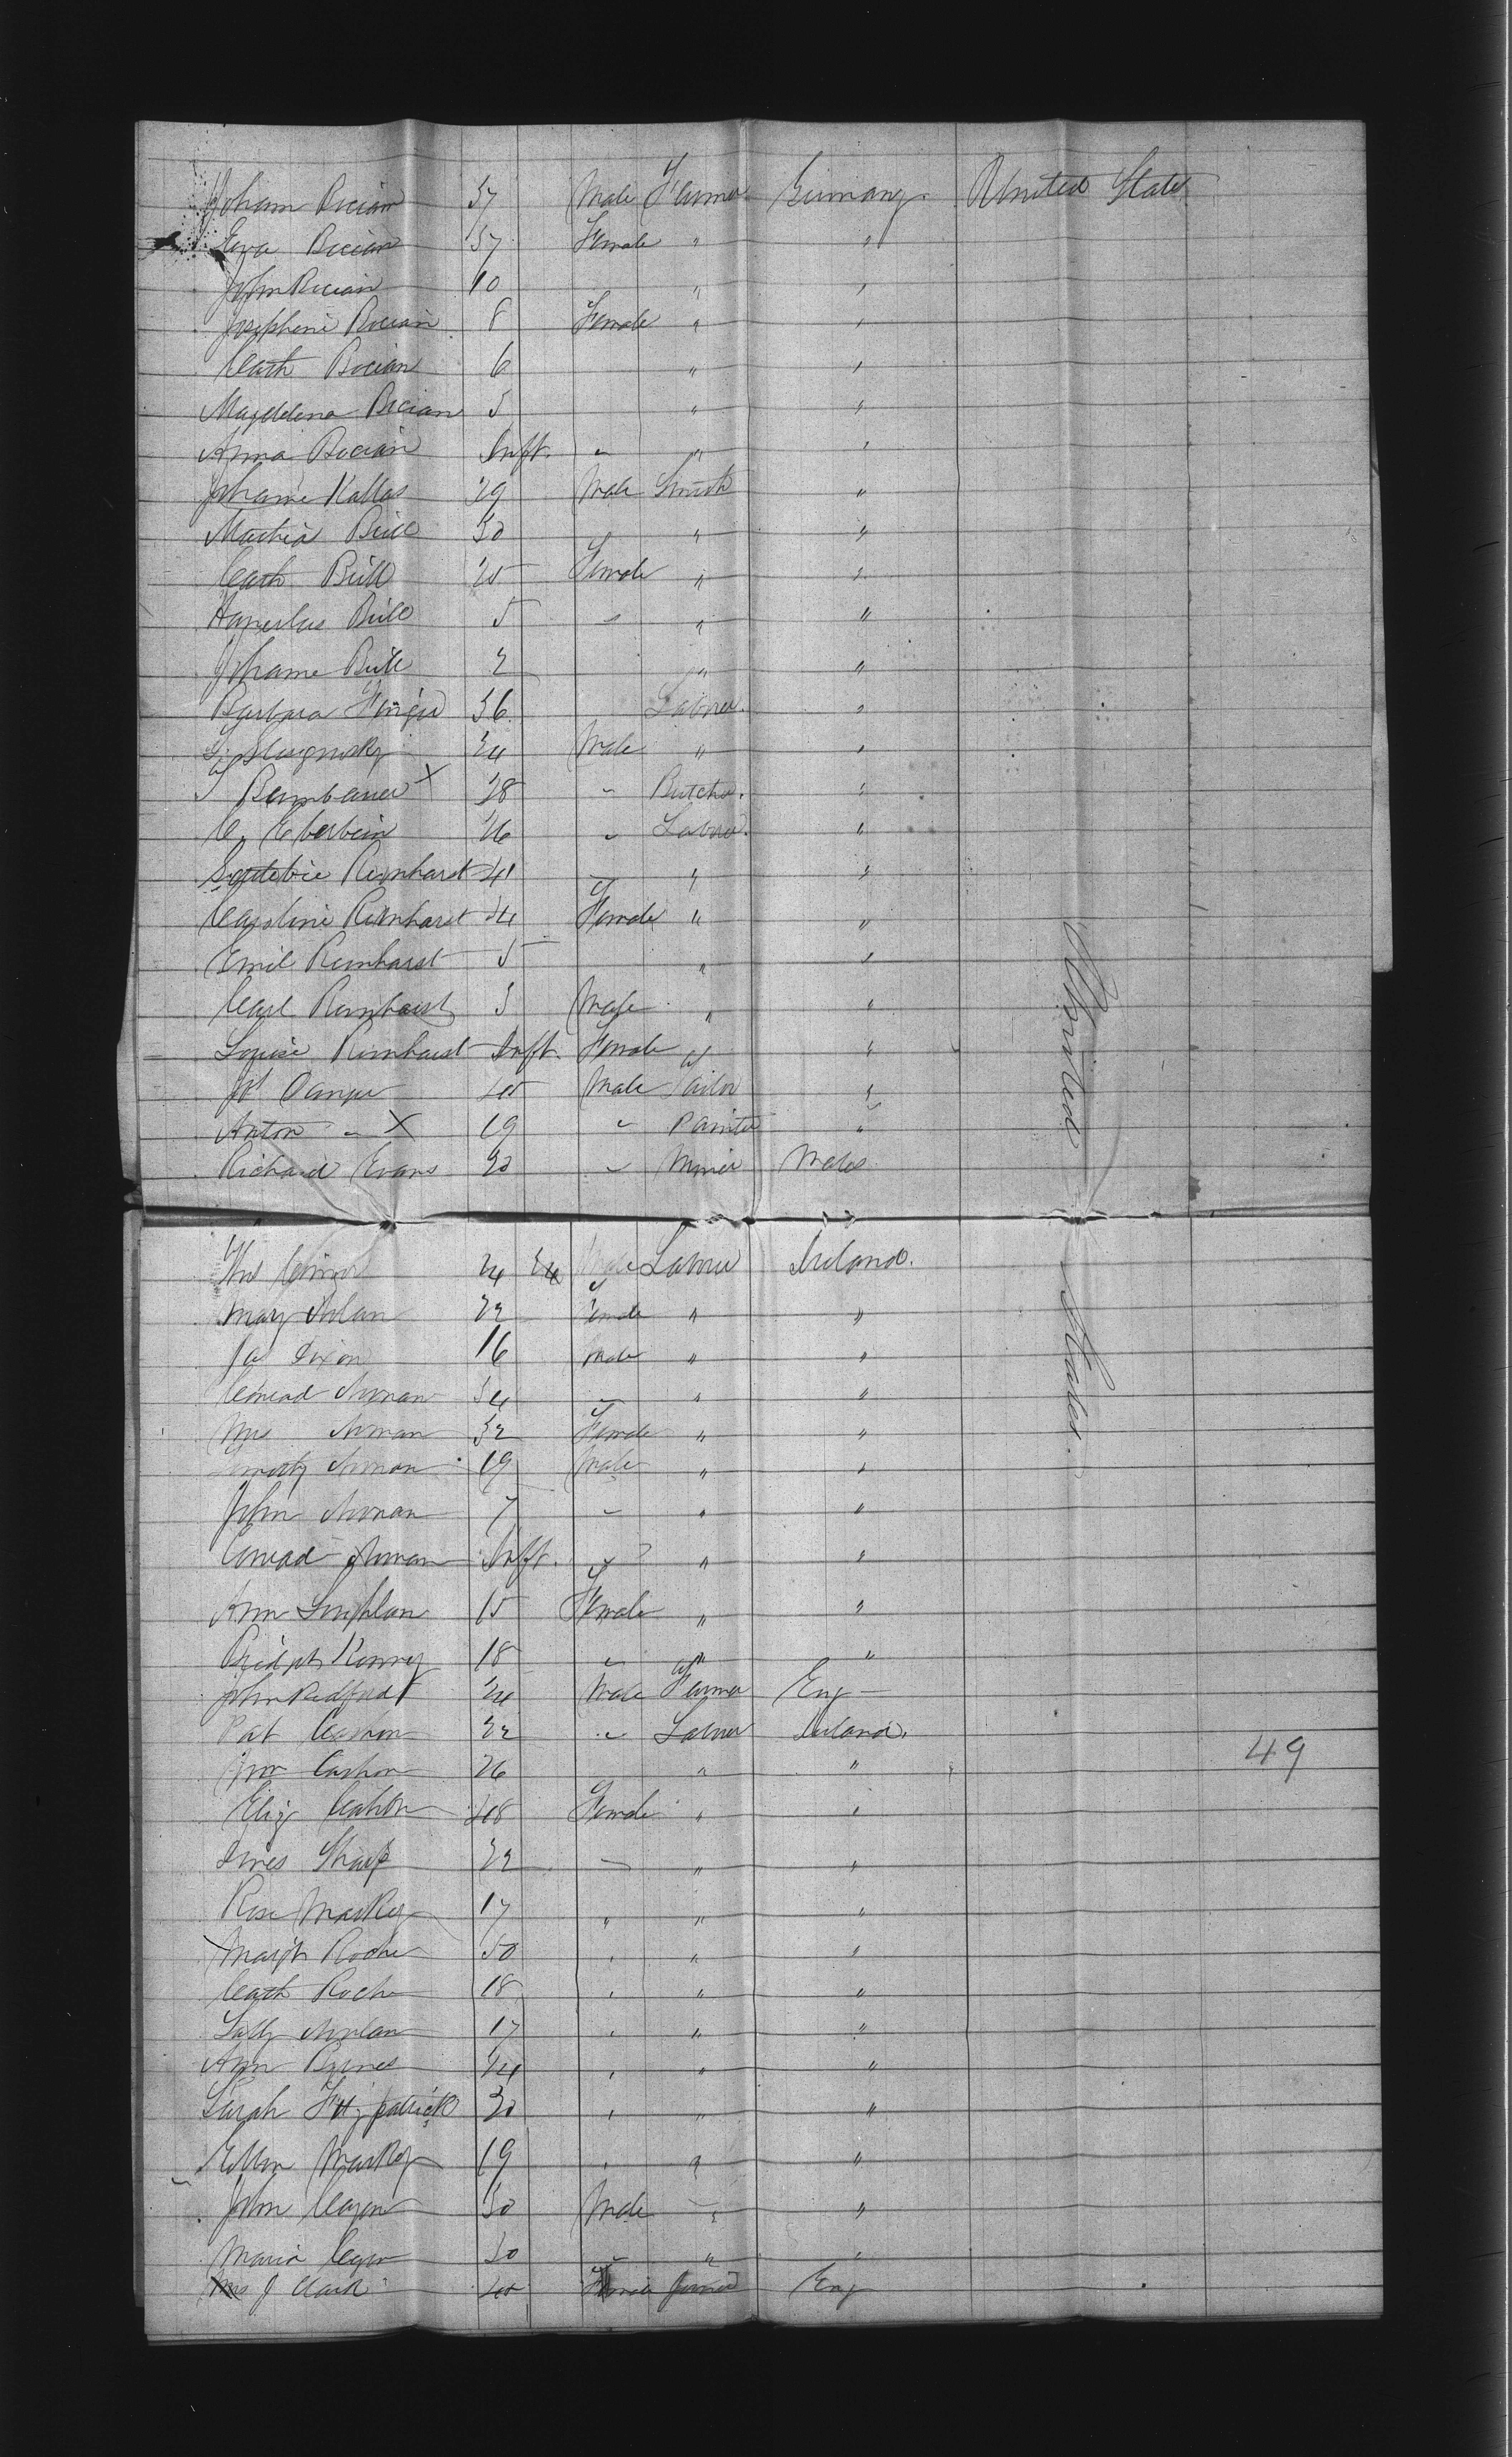 Joham Bocian 37 Male Farmer Germany United States
Eva Bocian 37 Female " "
John Bocian 10 " "
Josephine Bocian 8 Female " "
Cath Bocian 6 " "
Magdelena Bocian 3 " "
Anna Bocian Inft. " " "
Johame Kallas 29 Male Smith "
Mathia Bill 30 " "
Cath Bill 25 Female " "
Bill 5 " " "
Johame Bill 2 " "
Barbara 36 Laborer "
34 Male " "
Bambauer X 28 " Butcher "
C. Eberbein 26 " Laborer "
Reinharst 41 " " "
Caroline Reinharst 41 Female " "
Emil Reinharst 5 " "
Carl Reinharst 3 Male " "
Louise Reinharst Inft. Female " "
45 Male Tailor "
Anton " X 19 " Painter "
Richard Evans 30 " Miner Wales
Thos 24 Male Laborer Ireland.
Mary Nolan 22 Female " "
Jas Dixon 16 Male " "
Conrad Noonan 34 " " "
Mrs Noonan 32 Female " "
Timothy Noonan 19 Male " "
John Noonan 7 " " "
Conrad Noonan Inft. " " "
Ann 15 Female " "
Bridget Kenney 18 " " "
John Redford 24 Male Farmer Eng
Pat Cashon 32 " Laborer Ireland.
Cashon 26 " " 49
Eliz Cashon 48 Female " "
Sharp 22 " " "
Rose Markey 17 " " "
Margt Roche 50 " " "
Cath Roche 18 " " "
Nolan 17 " " "
Ann Byrnes 24 " " "
Sarah Fitzpatrick 30 " " "
Ellen Markey 19 " " "
John 30 Male " "
Maria 30 " " "
Mrs J Clark 45 Eng
United States.